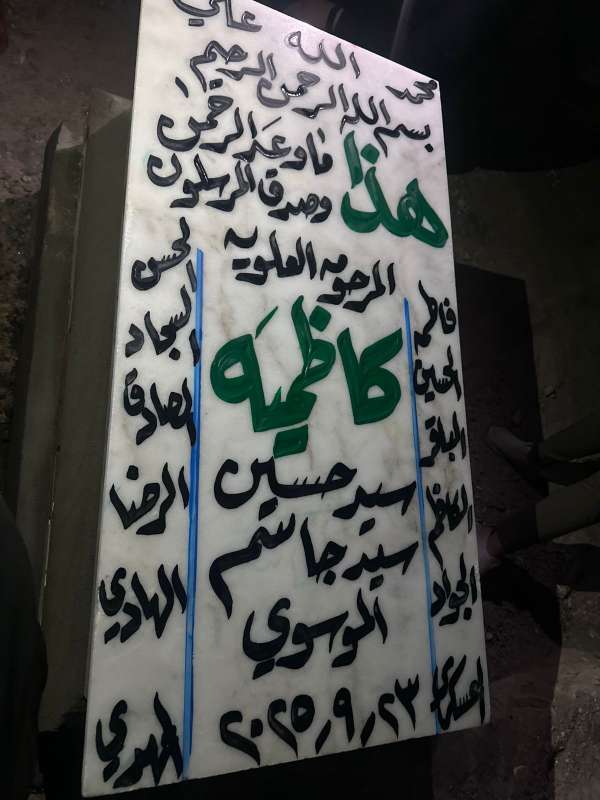 محمد الله علي
بسم الله الرحمن الرحيم
هذا ما وعد الرحمن
وصدق المرسلون
المرحومه العلويه
كاظميه
سيد حسين
سيد جاسم
الموسوي
٢٠٢٥/٩/٢٣
فاطمه
الحسين
الباقر
الكاظم
الجواد
العسكري
الحسن
السجاد
الصادق
الرضا
الهادي
المهدي